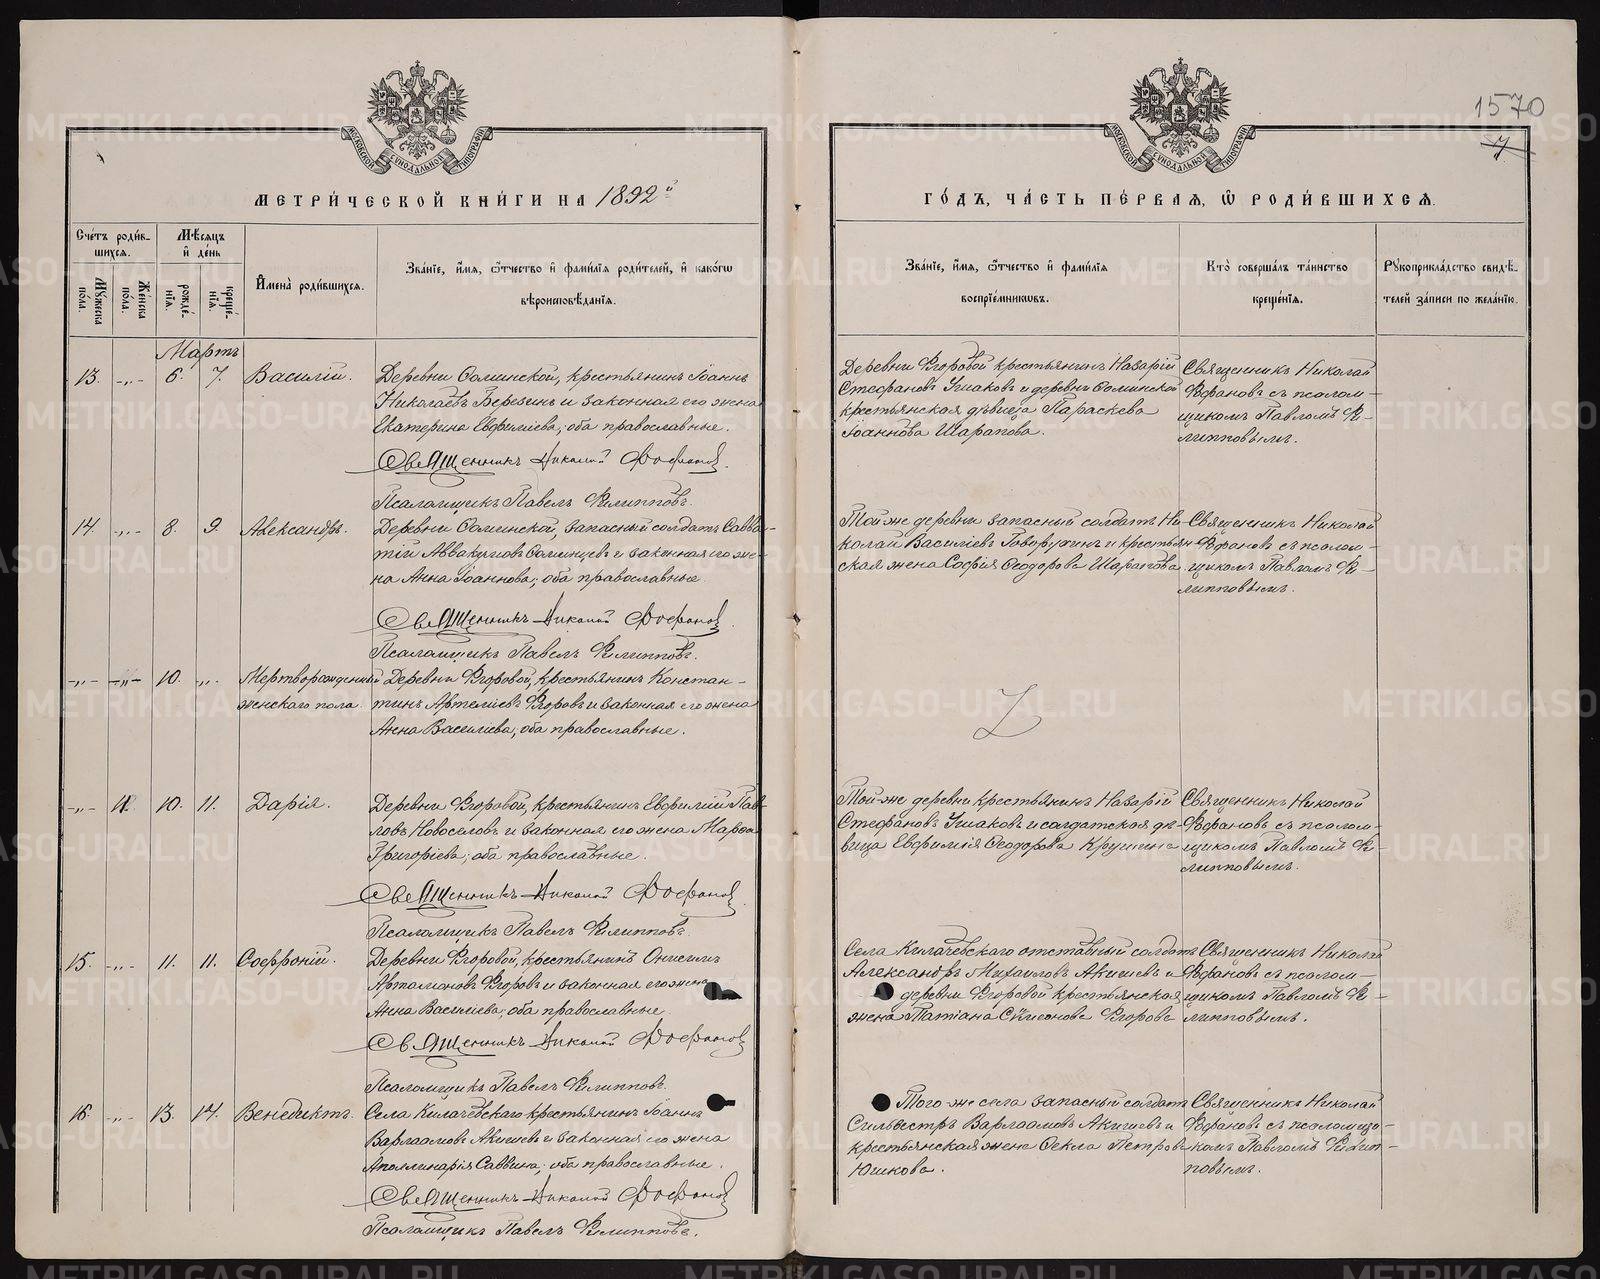 1570
7
МЕТРИ́ЧЕСКОЙ КНИ́ГИ НА 1892 й
Сче́тъ роди́в-
шихся.
Му́жеска
по́ла.
Же́нска
по́ла.
Мѣ́сяцъ
и҆ де́нь
рожде́-
нїѧ.
креще́-
нїѧ.
И҆мена̀ роди́вшихся.
Зва́нїе, и҆́мѧ, ѻ҆́тчество и҆ фами́лїѧ роди́телей, и҆ како́гѡ
вѣроисповѣ́данїѧ.
Мартъ
13. -„- 6. 7. Василій.
Деревни Соминской, крестьянинъ Іоаннъ
Николаевъ Березинъ и законная его жена
Екатерина Евфиміева; оба православные.
Священникъ Николай Фофановъ.
Псаломщикъ Павелъ Филипповъ.
14. -„- 8. 9. Александръ.
Деревни Соминской, запасный солдатъ Савва-
тій Аввакумовъ Соминцевъ и законная его же-
на Анна Іоаннова; оба православные.
Священникъ Николай Фофановъ.
Псаломщикъ Павелъ Филипповъ.
-„- -„- 10. -„-. Мертворожденный
женскаго пола.
Деревни Ѳгоровой, крестьянинъ Констан-
тинъ Артеміевъ Ѳгоровъ и законная его жена
Анна Василіева; оба православные.
-„- 11. 10. 11. Дарія.
Деревни Ѳгоровой, крестьянинъ Евфимій Пав-
ловъ Новоселовъ и законная его жена Марѳа
Григоріева; оба православные.
Священникъ Николай Фофановъ.
Псаломщикъ Павелъ Филипповъ.
15. -„- 11. 11. Софроній.
Деревни Ѳгоровой, крестьянинъ Онисимъ
Артамоновъ Ѳгоровъ и законная его жена
Анна Василіева; оба православные.
Священникъ Николай Фофановъ
Псаломщикъ Павелъ Филипповъ.
16. -„- 13. 14. Венедиктъ.
Села Килачевскаго крестьянинъ Іоаннъ
Варлаамовъ Акишевъ и законная его жена
Аполлинарія Саввина; оба православные.
Священникъ Николай Фофановъ
Псаломщикъ Павелъ Филипповъ.
ГО́ДЪ, ЧА́СТЬ ПЕ́РВАѦ, Ѡ҆ РОДИ́ВШИХСѦ.
Зва́нїе, и҆́мѧ, ѻ҆́тчество и҆ фами́лїѧ
воспрїе́мникѡвъ.
Кто̀ соверша́лъ та́инство
креще́нїѧ.
Рꙋкоприкла́дство свидѣ́-
телей за́писи по жела́нїю.
Деревни Ѳгоровой крестьянинъ Назарій
Стефановъ Ушаковъ и деревни Соминской
крестьянская дѣвица Параскева
Іоаннова Шарапова.
Священникъ Николай
Фофановъ съ псалом-
щикомъ Павломъ Фи-
липповымъ.
Той же деревни запасный солдатъ Ни-
колай Василіевъ Говорухинъ и крестьян-
ская жена Софія Ѳеодорова Шарапова.
Священникъ Николай
Фофановъ съ псалом-
щикомъ Павломъ Фи-
липповымъ.
Z
Той-же деревни крестьянинъ Назарій
Стефановъ Ушаковъ и солдатская дѣ-
вица Евфимія Ѳеодорова Крушина
Священникъ Николай
Фофановъ съ псалом-
щикомъ Павломъ Фи-
липповымъ.
Села Килачевскаго отставный солдатъ
Александръ Михаиловъ Акишевъ и
деревни Ѳгоровой крестьянская
жена Татіана Сѵмеонова Ѳгорова
Священникъ Николай
Фофановъ съ псалом-
щикомъ Павломъ Фи-
липповымъ.
Того-же села запасный солдатъ
Сильвестръ Варлаамовъ Акишевъ и
крестьянская жена Ѳекла Петрова
Юшкова.
Священникъ Николай
Фофановъ съ псаломщи-
комъ Павломъ Филип-
повымъ.